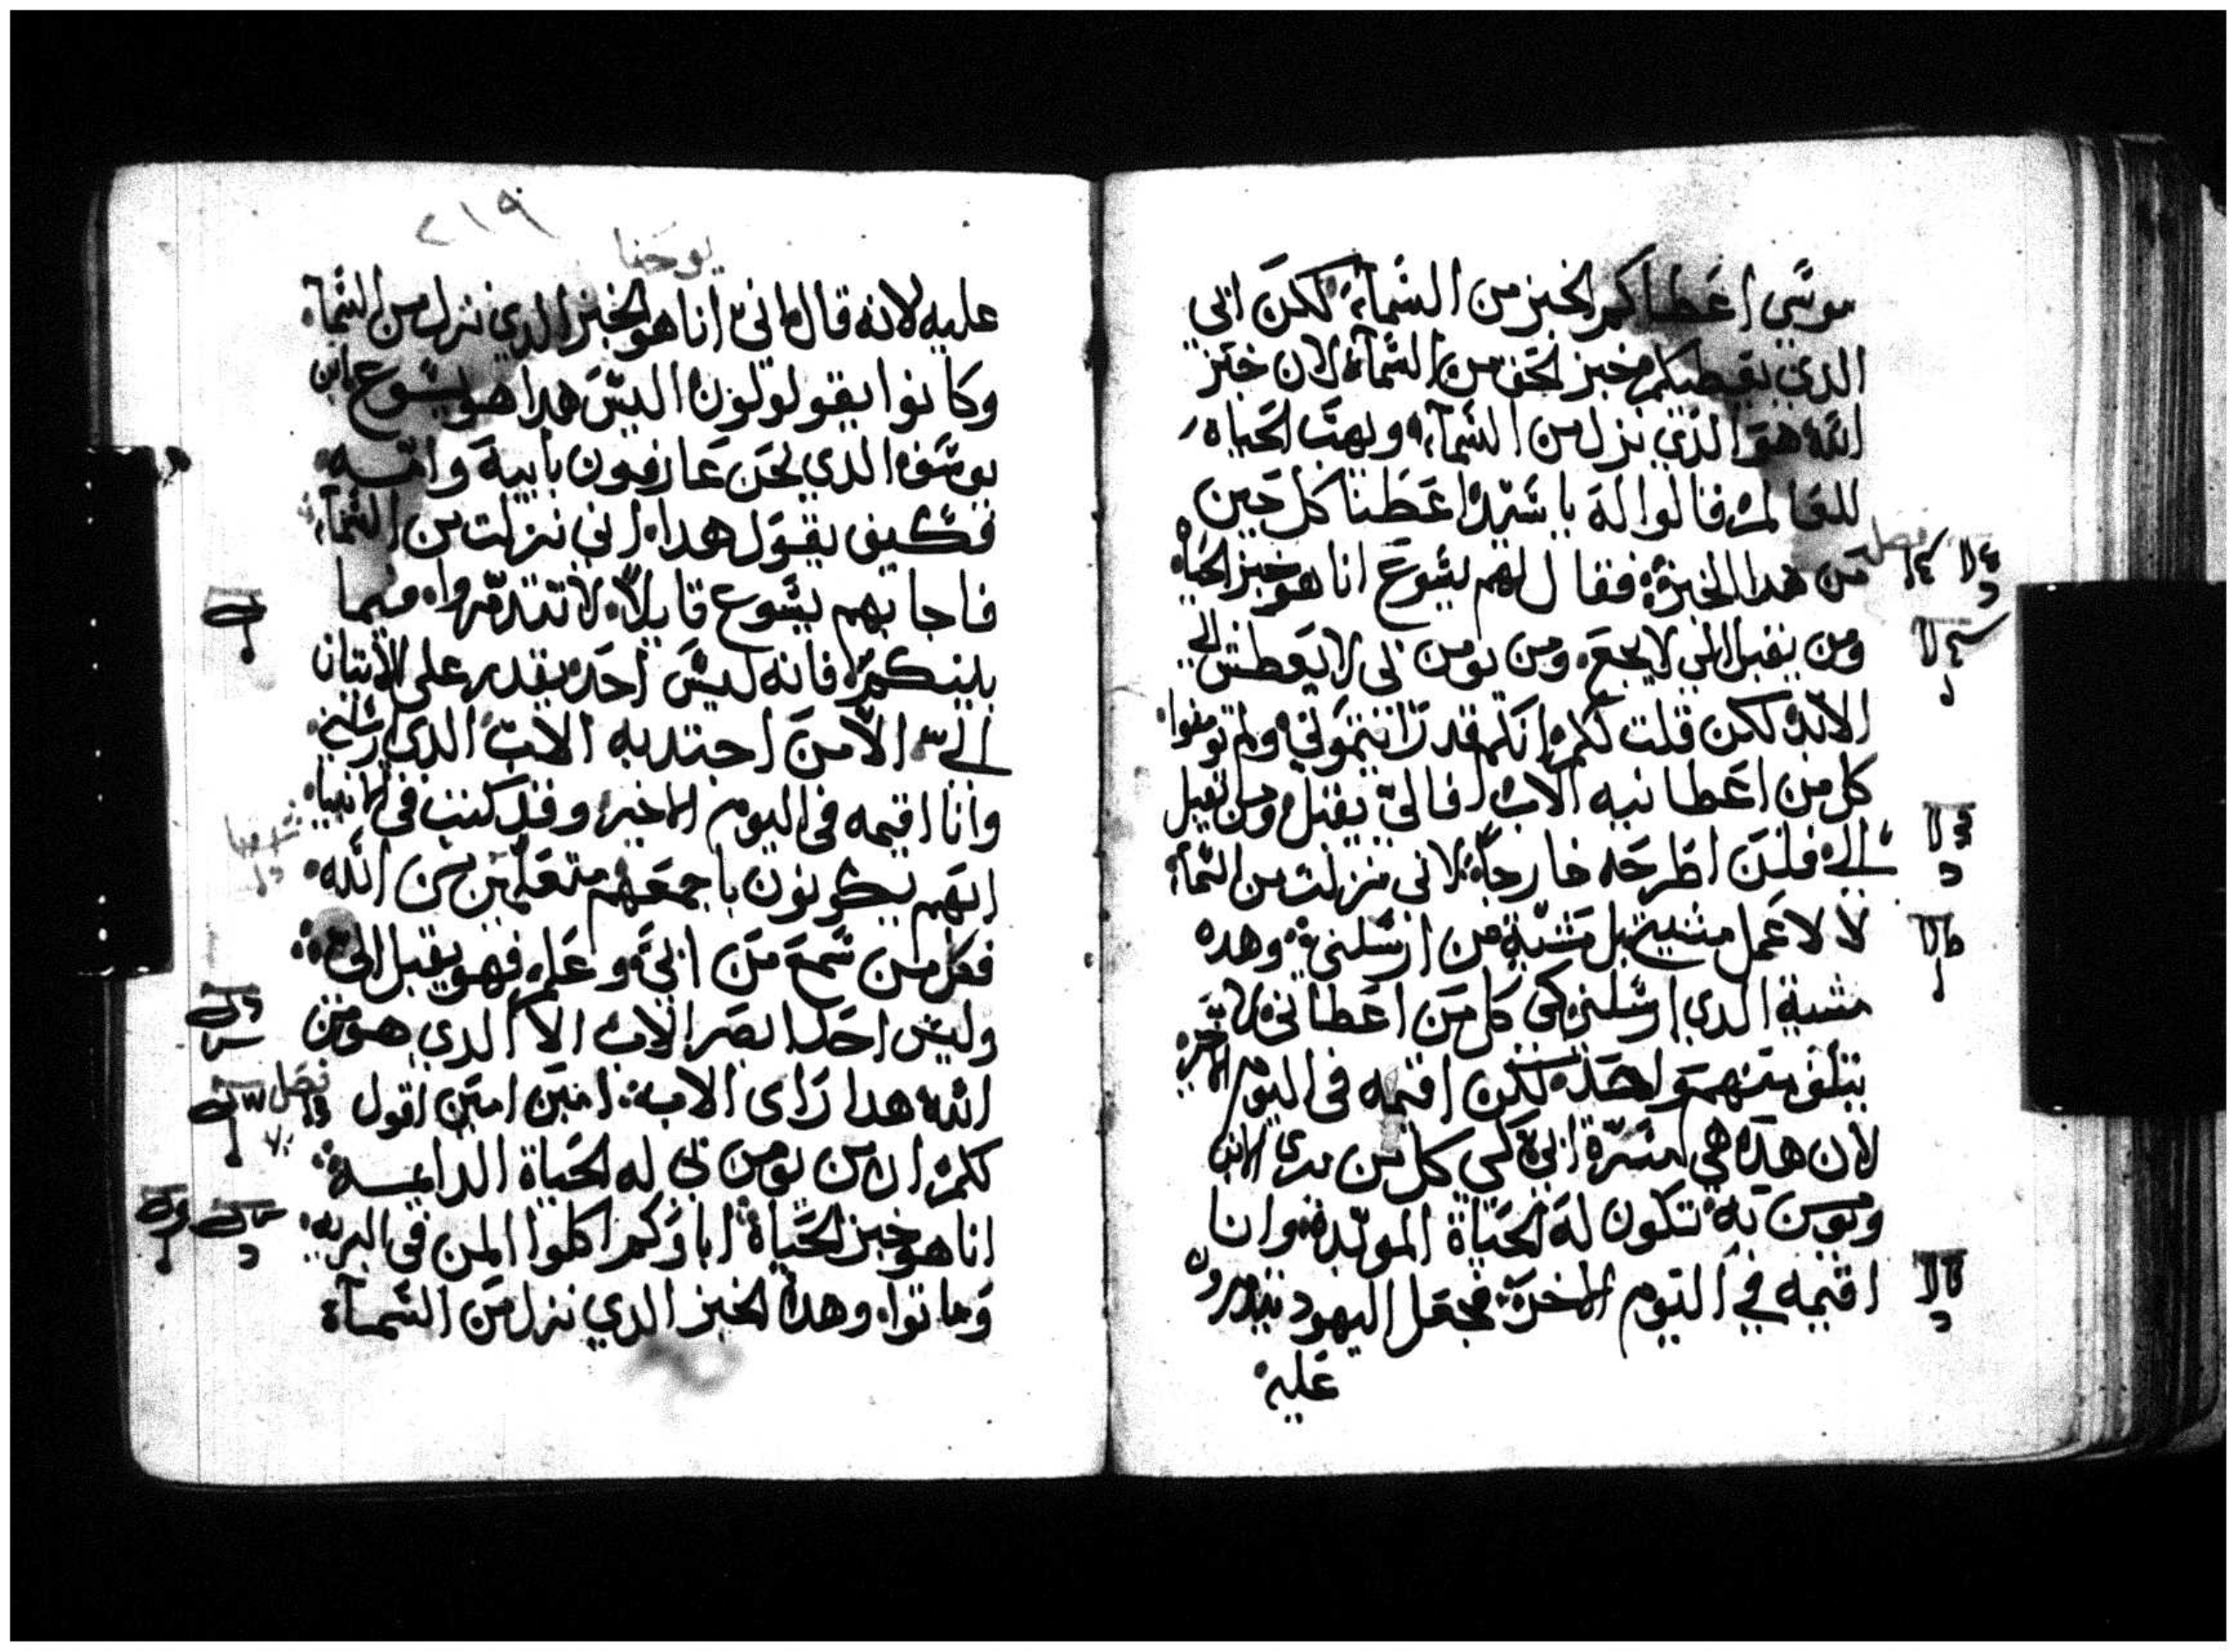 موسي اعطاكم الخبز من السماء لكن ابي
الذي يعطيكم خبز الحق من السماء لان خبز
الله هو الذي نزل من السماء ويهب الحياه
للعالم فقالوا له يا سيد اعطنا كل حين
من هدا الخبز فقال لهم يسوع انا هو خبز الحياه
ومن يقبل الي لا يجع ومن يومن بي لا يعطش الي
الابد لكن قلت لكم انكم قد رايتموني ولم تومنوا
كل من اعطانيه الاب فالي يقبل ومن يقبل
الي فلن اطرحه خارجا لاني نزلت من السماء
لا لاعمل مشيتي بل مشية من ارسلني وهده
مشية الدي ارسلني كي كل من اعطاني لا
يتلف منهم واحد لكن اقيمه في اليوم الاخير
لان هده هي مسرة ابي كي كل من يري الابن
ويومن به تكون له الحياة الموبدة وانا
اقيمه في اليوم الاخر فجعل اليهود يتدمرون
عليه
٢١٩
يوحنا
عليه لانه قال اني انا هو الخبز الدي نزل من السماء
وكانوا يقولولون اليس هدا هو يسوع ابن
يوسف الدي نحن عارفون بابيه وامه
فكيف يقول هدا اني نزلت من السماء
فاجابهم يسوع قايلا لا تتدمروا فيما
بينكم فانه ليس احد يقدر علي الاتيان
الي الا من اجتدبه الاب الدي ارسلني
وانا اقيمه في اليوم الاخير وقد كتب في الانبياء
انهم يكونون باجمعهم متعلمين من الله
فكل من سمع من ابي وعلم فهو يقبل الي
وليس احدا ابصر الاب الا الدي هو من
الله هدا راى الاب امين امين اقول
فصل
لكم ان من يومن بي له الحياة الدايمه
انا هو خبز الحياة اباوكم اكلوا المن في البريه
وماتوا وهدا الخبز الدي نزل من السماء